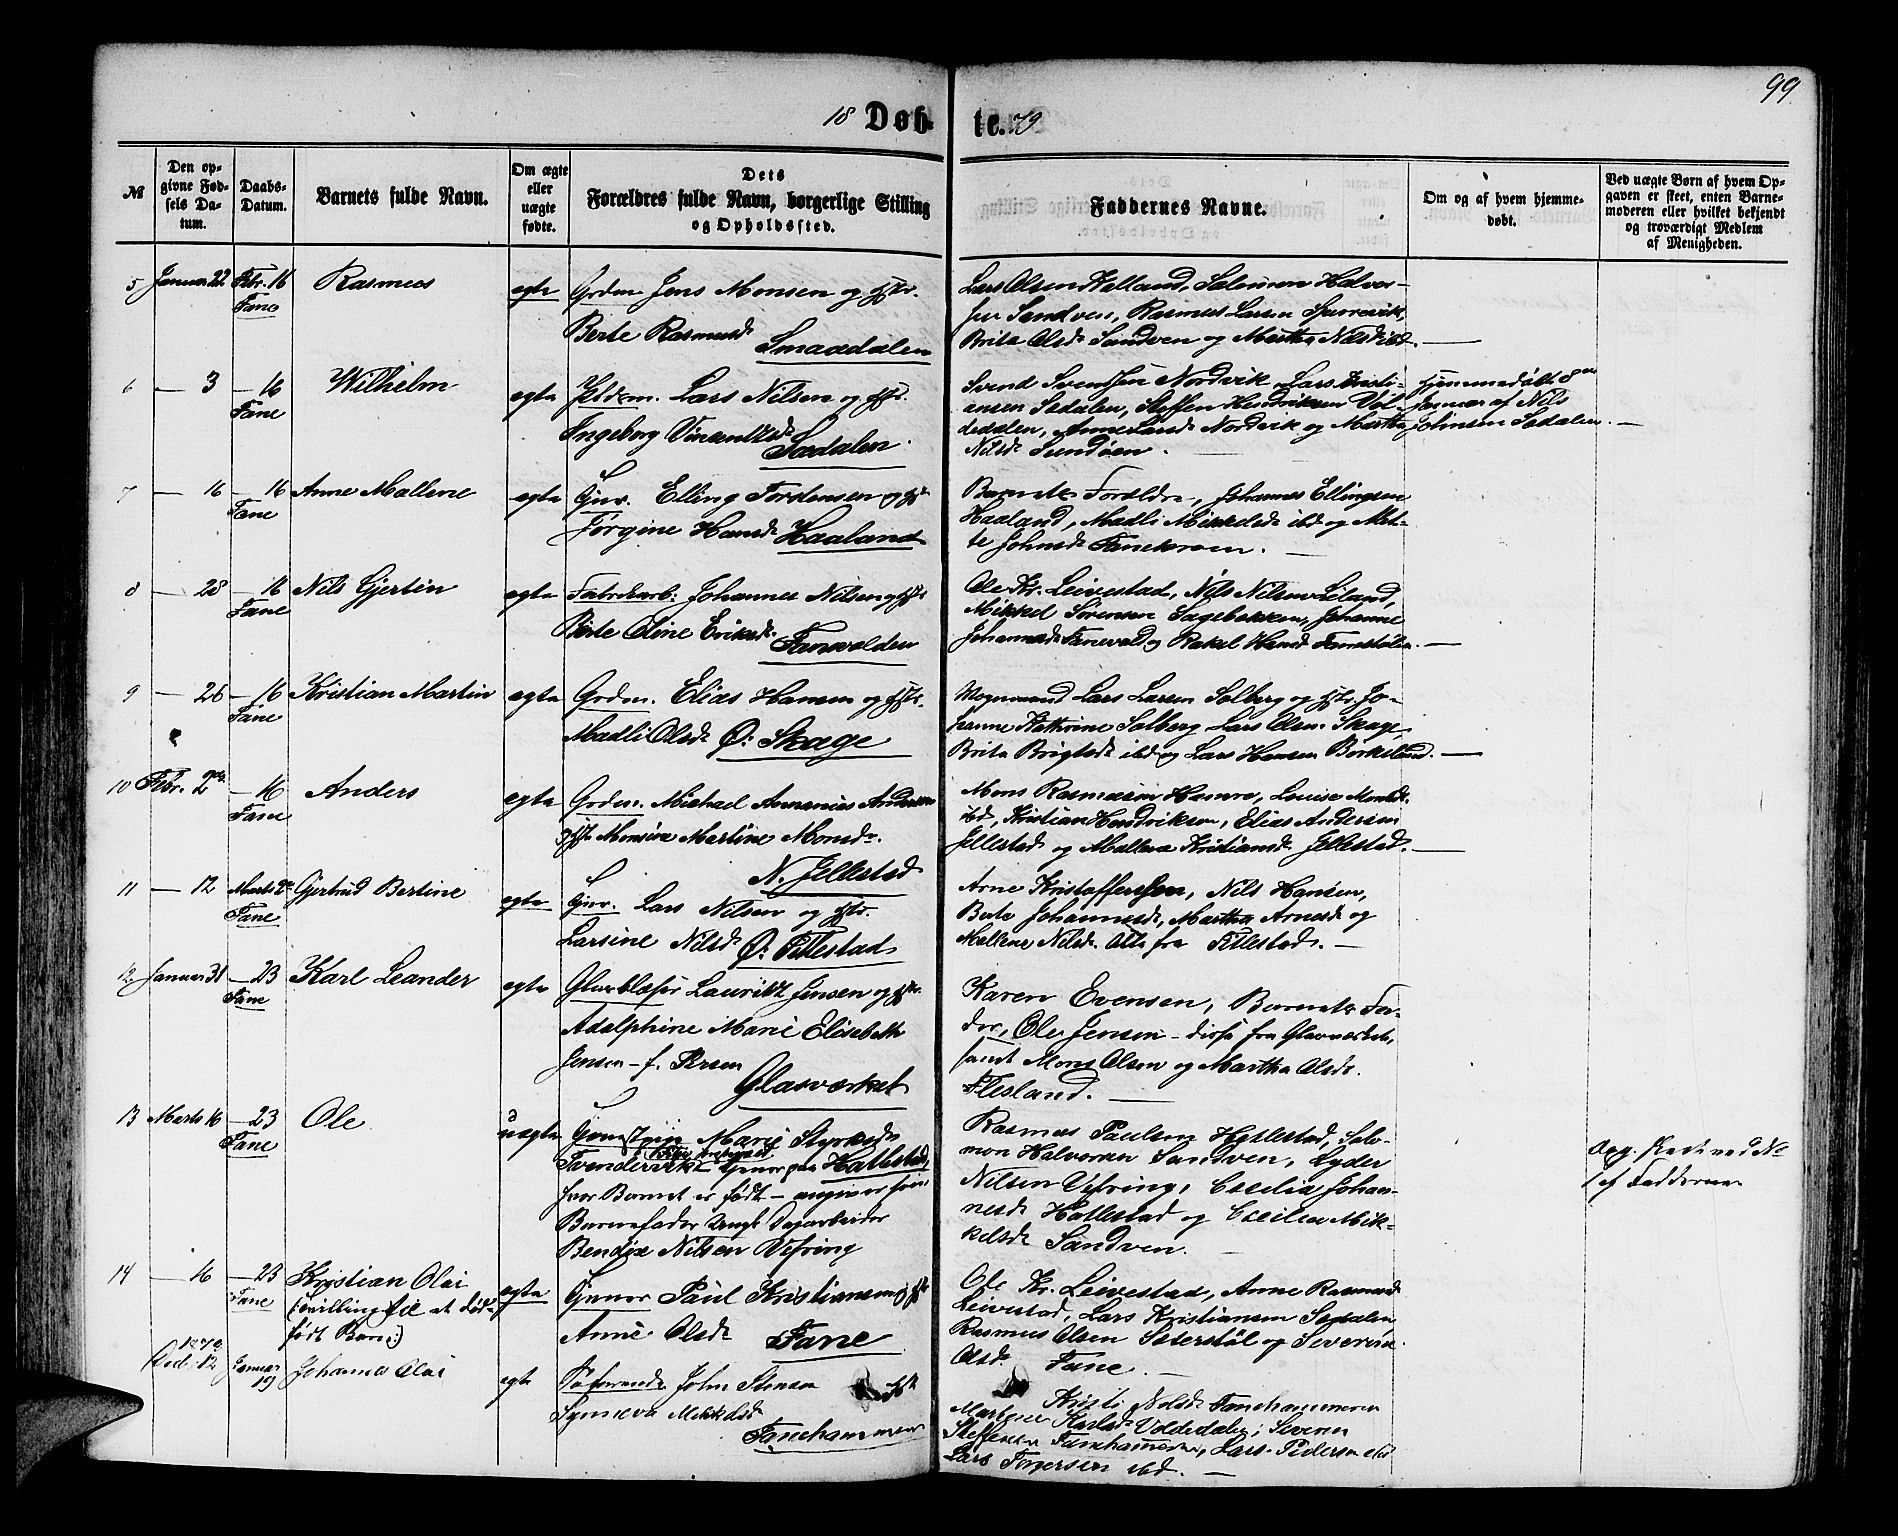 99
18 Døb-
te. 79
№
Den op-
givne Fød-
sels Da-
tum.
Daabs-
Datum.
Barnets fulde Navn.
Om ægte
eller
uægte
fødte.
Dets
Forældres fulde Navn, borgerlige Stilling
og Opholdssted.
Faddernes Navne.
Om og af hvem hjemme-
døbt.
Ved uægte Børn af hvem Op-
gaven er skeet, enten Barne-
moderen eller hvilket bekjendt
og troværdigt Medlem
af Menigheden.
5 Januar 22 Febr. 16 Rasmus egte Grdm. Jens Monsen og Hstr.
Fane
Berte Rasmusd.
Smaadalen
Lars Olsen Helland, Salomon Halvor-
sen Sandven, Rasmus Larsen
Brita Olsd. Sandven og Martha Nilsd. ibd.
6 — 3 — 16 Wilhelm egte Lars Nilsen og Hstr.
Fane
Ingeborg
Sædalen
Svend Svendsen Nordvik, Lars Kristi-
ansen Sædalen, Steffen Hendriksen Vol-
dedalen, Anne Larsd. Nordvik og Martha
Nilsd. Sundøen.
Hjemmedøbt 8de
Januar af Nils
Johnsen Sædalen.
7 — 16 — 16 Anne Mallene egte Gjnr. Elling Torstensen og Hstr.
Fane
Jørgine Hansd. Haaland
Barnets Forældre, Johannes Ellingsen
Haaland, Madli Mikkelsd. ibd og Met-
te Johnsd. Fanekroen.
8 — 28 — 16 Nils Gjertin egte Fabrikarb. Johannes Nilsen og Hstr.
Fane
Berte Oline Eriksd.
Fanevolden
Ole Kr. Leivestad, Nils Nilsen Liland,
Mikkel Sørensen Sagebakken, Johanne
Johannesd. Fanevold og Rakel Hansd.
9 — 26 — 16 Kristian Martin egte Grdm. Elias Hansen og Hstr.
Fane
Madli Olsd. Ø. Skage
Vognmand Lars Larsen Solberg og Hstr. Jo-
hanne Kathrine Solberg, Lars Olsen Skage,
Brita Brigtsd. ibd og Lars Hansen Birkeland.
10 Febr. 2den — 16 Anders egte Grdm. Michael Annanias Andersen
Fane
og Hstr. Monsine Martine Monsd.
N. Jellestad
Mons Rasmussen Hamre, Louise Monsd.
ibd, Kristian Hendriksen, Elias Andersen
Jellestad og Mallena Kristiansd. Jellestad.
11 — 12 Marts 2de Gjertrud Bertine egte Gjnr. Lars Nilsen og Hstr.
Fane
Larsine Nilsd. Ø. Titlestad
Arne Kristoffersen, Nils Hansen,
Berte Johannesd., Martha Arnesd. og
Mallene Nilsd. Alle fra Titlestad.
12 Januar 31 — 23 Karl Leander egte Glasblæser Lauritz Jensen og Hstr.
Fane
Adolphine Marie Elisabeth
Jensen — f. Persen
Glasværket
Karen Evensen, Barnets Fa-
der, Ole Jensen — disse fra Glasværket,
samt Mons Olsen og Martha Olsd.
Flesland.
13 Marts 16 — 23 Ole uægte Marie Styrksd.
Fane
Hatlestad,
hvor Barnet er født — angiver som
Barnefader Ungk. Dagarbeider
Bendix Nilsen Vefring
Rasmus Paulsen Hatlestad, Salo-
mon Halvorsen Sandven, Lyder
Nilsen Vefring, Cecilia Johan-
nesd. Hatlestad og Cecilia Mik-
kelsd. Sandven.
Opg. skeet ved No
1 af Fadderne
14 — 16 — 23 Kristian Olai egte Gjnr Paul Kristiansen og Hstr
Fane
(: til et død-
født Barn:)
Anne Olsd. Fane
Ole Kr. Leivestad, Anne Rasmusd.
Leivestad, Lars Kristiansen Sædalen
Rasmus Olsen Seterstøl og Severine
Olsd. Fane.
1878
Dec. 12 Januar 19 Johanna Olai egte Søfarende John Stensen Hstr
Synneva Mikkelsd.
Fanehammeren
Kristi Nilsd. Fanehammeren
Martene Karlsd. Voldedalen, Severin
Steffensen Fanehammeren, Lars Pedersen ibd
Lars Torgersen ibd.